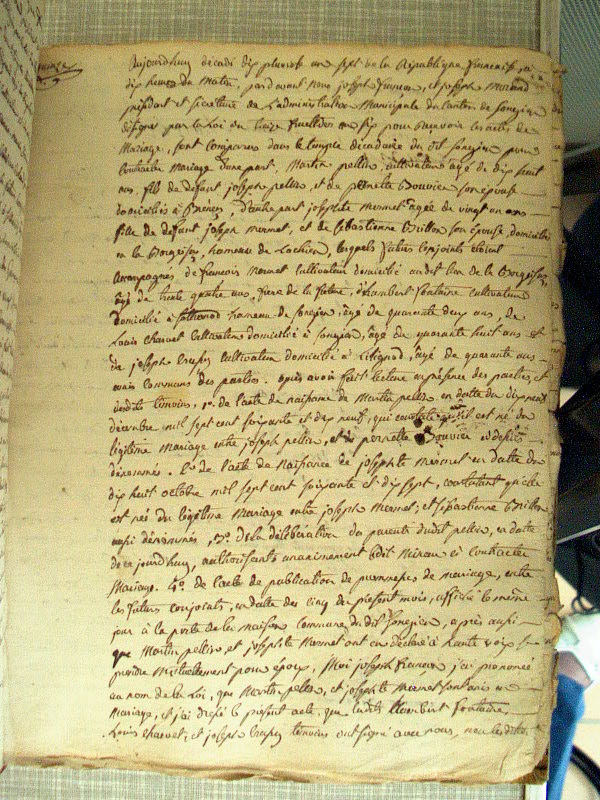 Aujourdhuy décadi dix pluviose an sept de la République françoise, a
dix heures du Matin, pardevant nous joseph et joseph Morand
président et secrétaire de L'administration Municipale du Canton de Songieu
désigné par la Loi du treize fructidor an six pour Recevoir les actes de
Mariage, sont comparus dans le temple décadaire du dit Songieu pour
Contracter Mariage d'une part, Martin pellin, cultivateur agé de dix huit
ans, fils de défunt joseph pellin, et de pernette Bouvier son épouse
domiciliés à , d'autre part josephte Mermet agée de vingt un ans
fille de defunt joseph mermet, et de sébastienne Brillon son épouse, domiciliée
en la , hameau de Lochieu, lesquels futurs conjoints étoient
accompagnés de françois Mermet cultivateur domicilié audit lieu de la
âgé de trente quatre ans, frere de la future, d'humbert fontaine cultivateur
domicilié à hameau de Songieu, âgé de quarante deux ans, de
Louis Charvet Cultivateur domicilié à Songieu, âgé de quarante huit ans et
de joseph cultivateur domicilié à , agé de quarante ans
amis communs des parties. après avoir fait lecture en présence des parties, et
desdits témoins, 1°. de l'acte de naissance de Martin pellin en datte du dix neuf
décembre mil sept cent soixante et dix neuf, qui constate qu'il est né du
légitime Mariage entre joseph pellin, et de pernette Bouvier
dénommés. 2°. de l'acte de Naissance de josephte mermet en datte du
dix huit octobre mil sept cent soixante et dix sept, constatant qu'elle
est née du légitime Mariage entre joseph Mermet, et sébastienne Brillon
aussi dénommés, 3°. de la délibération des parents dudit pellin, en datte
de ce jourdhuy, authorisants unanimement ledit Mineur à contracter
Mariage. 4°. de l'acte de publication de promesses de mariage, entre
les futurs conjoints, en datte des cinq du présent mois, affiché le même
jour à la porte de la maison commune du dit Songieu, après aussi
que Martin pellin et josephte Mermet ont eu déclaré à haute voix se
prendre Mutuellement pour époux, Moi joseph j'ai prononcé
au nom de la Loi, que Martin pellin, et josephte mermet sont unis en
Mariage, et j'ai dressé le présent acte, que lesdits humbert fontaine
Louis Charvet, et joseph témoins ont signé avec nous, non les dits